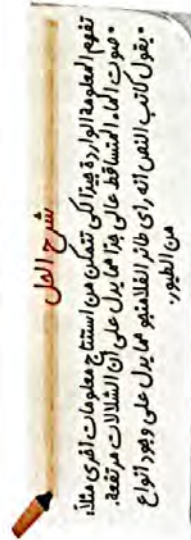 شرح الحل
تفهم المعلومة الواردة جيدًا لكي تتمكن من استنتاج معلومات أخرى مثلًا:
• صوت الماء المتساقط عالي جدًا مما يدل على أن الشلالات مرتفعة.
• يقول كاتب النص أنه رأى طائر الفلامنجو مما يدل على وجود أنواع
من الطيور.